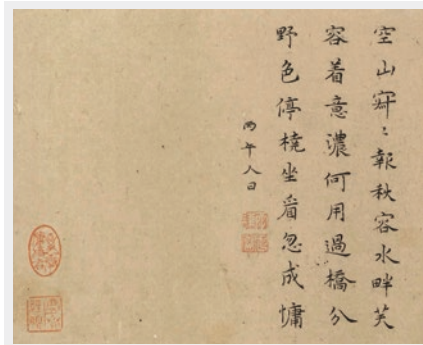 空山寂〻報秋容水畔芙
容着意濃何用過橋分
野色停橈坐看忽成慵
丙午八日